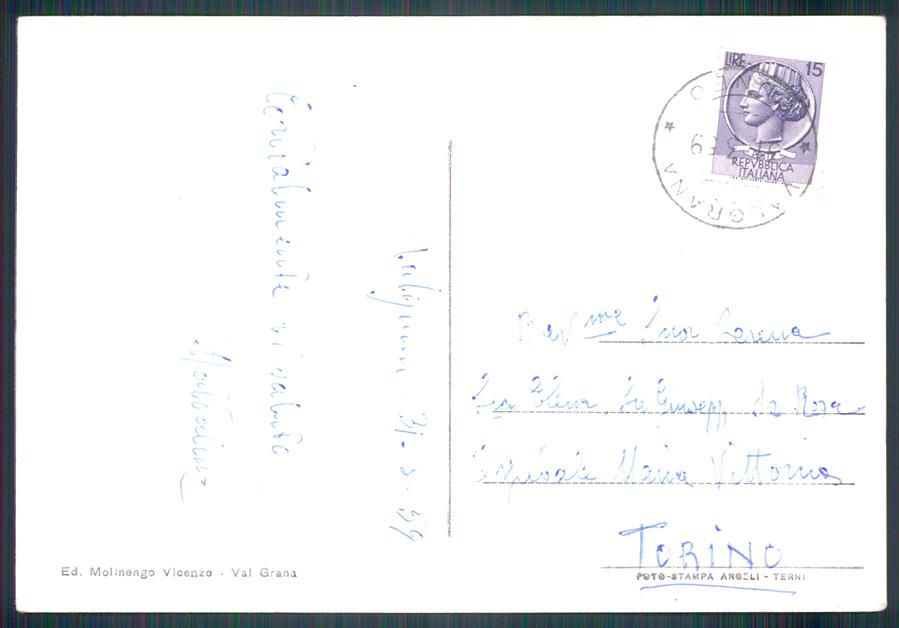 Cordialmente vi saluto
Valgrana 31-3-59
LIRE 15
REPVBBLICA
ITALIANA
CUNEO
VALGRANA
Rev me Suor Serena
Sr Elena, Sr Giusepp, Sr Rosa
Ospedale Maria Vittoria
TORINO
Ed. Molinengo Vicenzo - Val Grana
FOTO-STAMPA ANGELI - TERNI